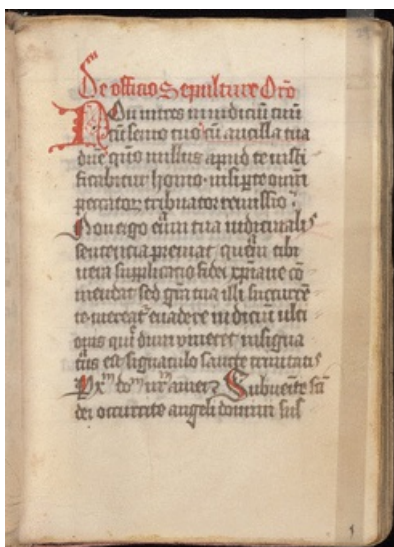 De officio Sepulture Orō
Non intres in iudiciū cum
cū seruo tuo cū ancilla tua
dn̄e quō nullus apud te iusti
ficabitur homo nisi per te omniū
peccatorꝝ tribuatur remissio
Non ergo eum tua iudicialis
sentencia premat quem tibi
vera supplicacio fidei xp̄iane cō
mendat sed grā tua illi succurrē
te mereat᷑ euadere iudiciū ulci
onis qui dum viueret insigni
tus est signaculo sancte trinitatis
P xp̄m dom̄ nr̄m amen Subuenite sā
dei occurrite angeli domini sus